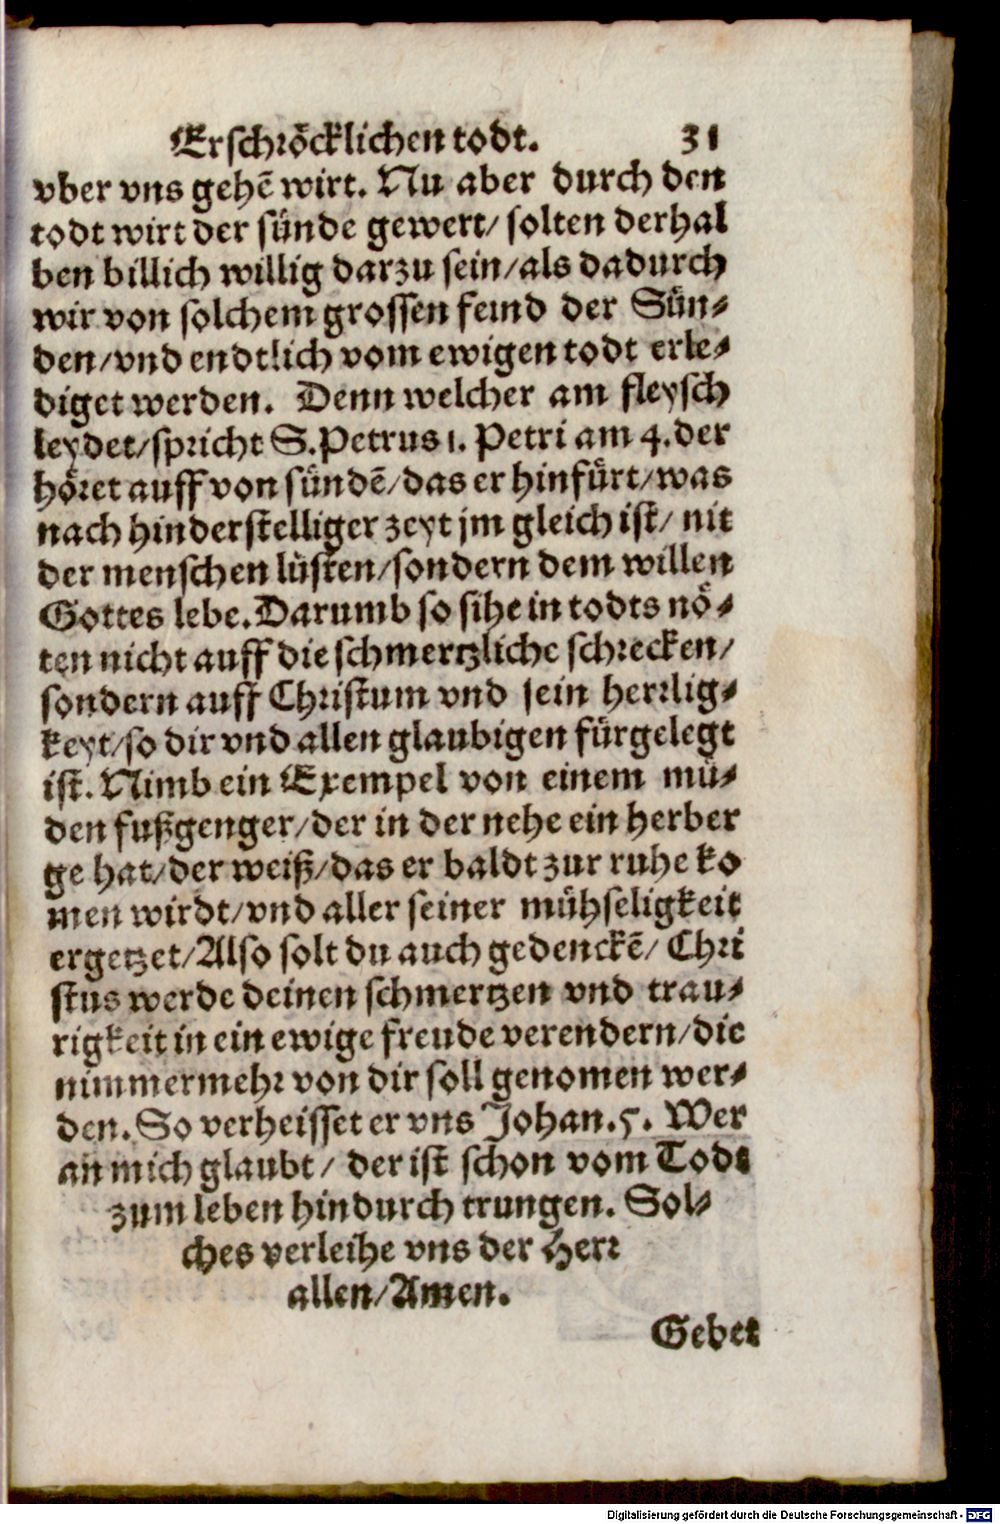 Erschröcklichen todt. 31
vber vns gehē wirt. Nu aber durch den
todt wirt der sünde gewert/ solten derhal
ben billich willig darzu sein/als dadurch
wir von solchem grossen feind der Sün-
den/vnd endtlich vom ewigen todt erle-
diget werden. Denn welcher am fleysch
leydet/spricht S.Petrus 1. Petri am 4.der
höret auff von sündē/das er hinfürt/was
nach hinderstelliger zeyt jm gleich ist/ nit
der menschen lüsten/sondern dem willen
Gottes lebe.Darumb so sihe in todts nö-
ten nicht auff die schmertzliche schrecken/
sondern auff Christum vnd sein herrlig-
keyt/so dir vnd allen glaubigen fürgelegt
ist. Nimb ein Exempel von einem mü-
den fußgenger/der in der nehe ein herber
ge hat/der weiß/das er baldt zur ruhe ko
men wirdt/vnd aller seiner mühseligkeit
ergetzet/Also solt du auch gedenckē/ Chri
stus werde deinen schmertzen vnd trau-
rigkeit in ein ewige freude verendern/die
nimmermehr von dir soll genomen wer-
den. So verheisset er vns Johan.5. Wer
an mich glaubt/ der ist schon vom Todt
zum leben hindurch trungen. Sol-
ches verleihe vns der Herr
allen/Amen.
Gebet
Digitalisierung gefördert durch die Deutsche Forschungsgemeinschaft - DFG